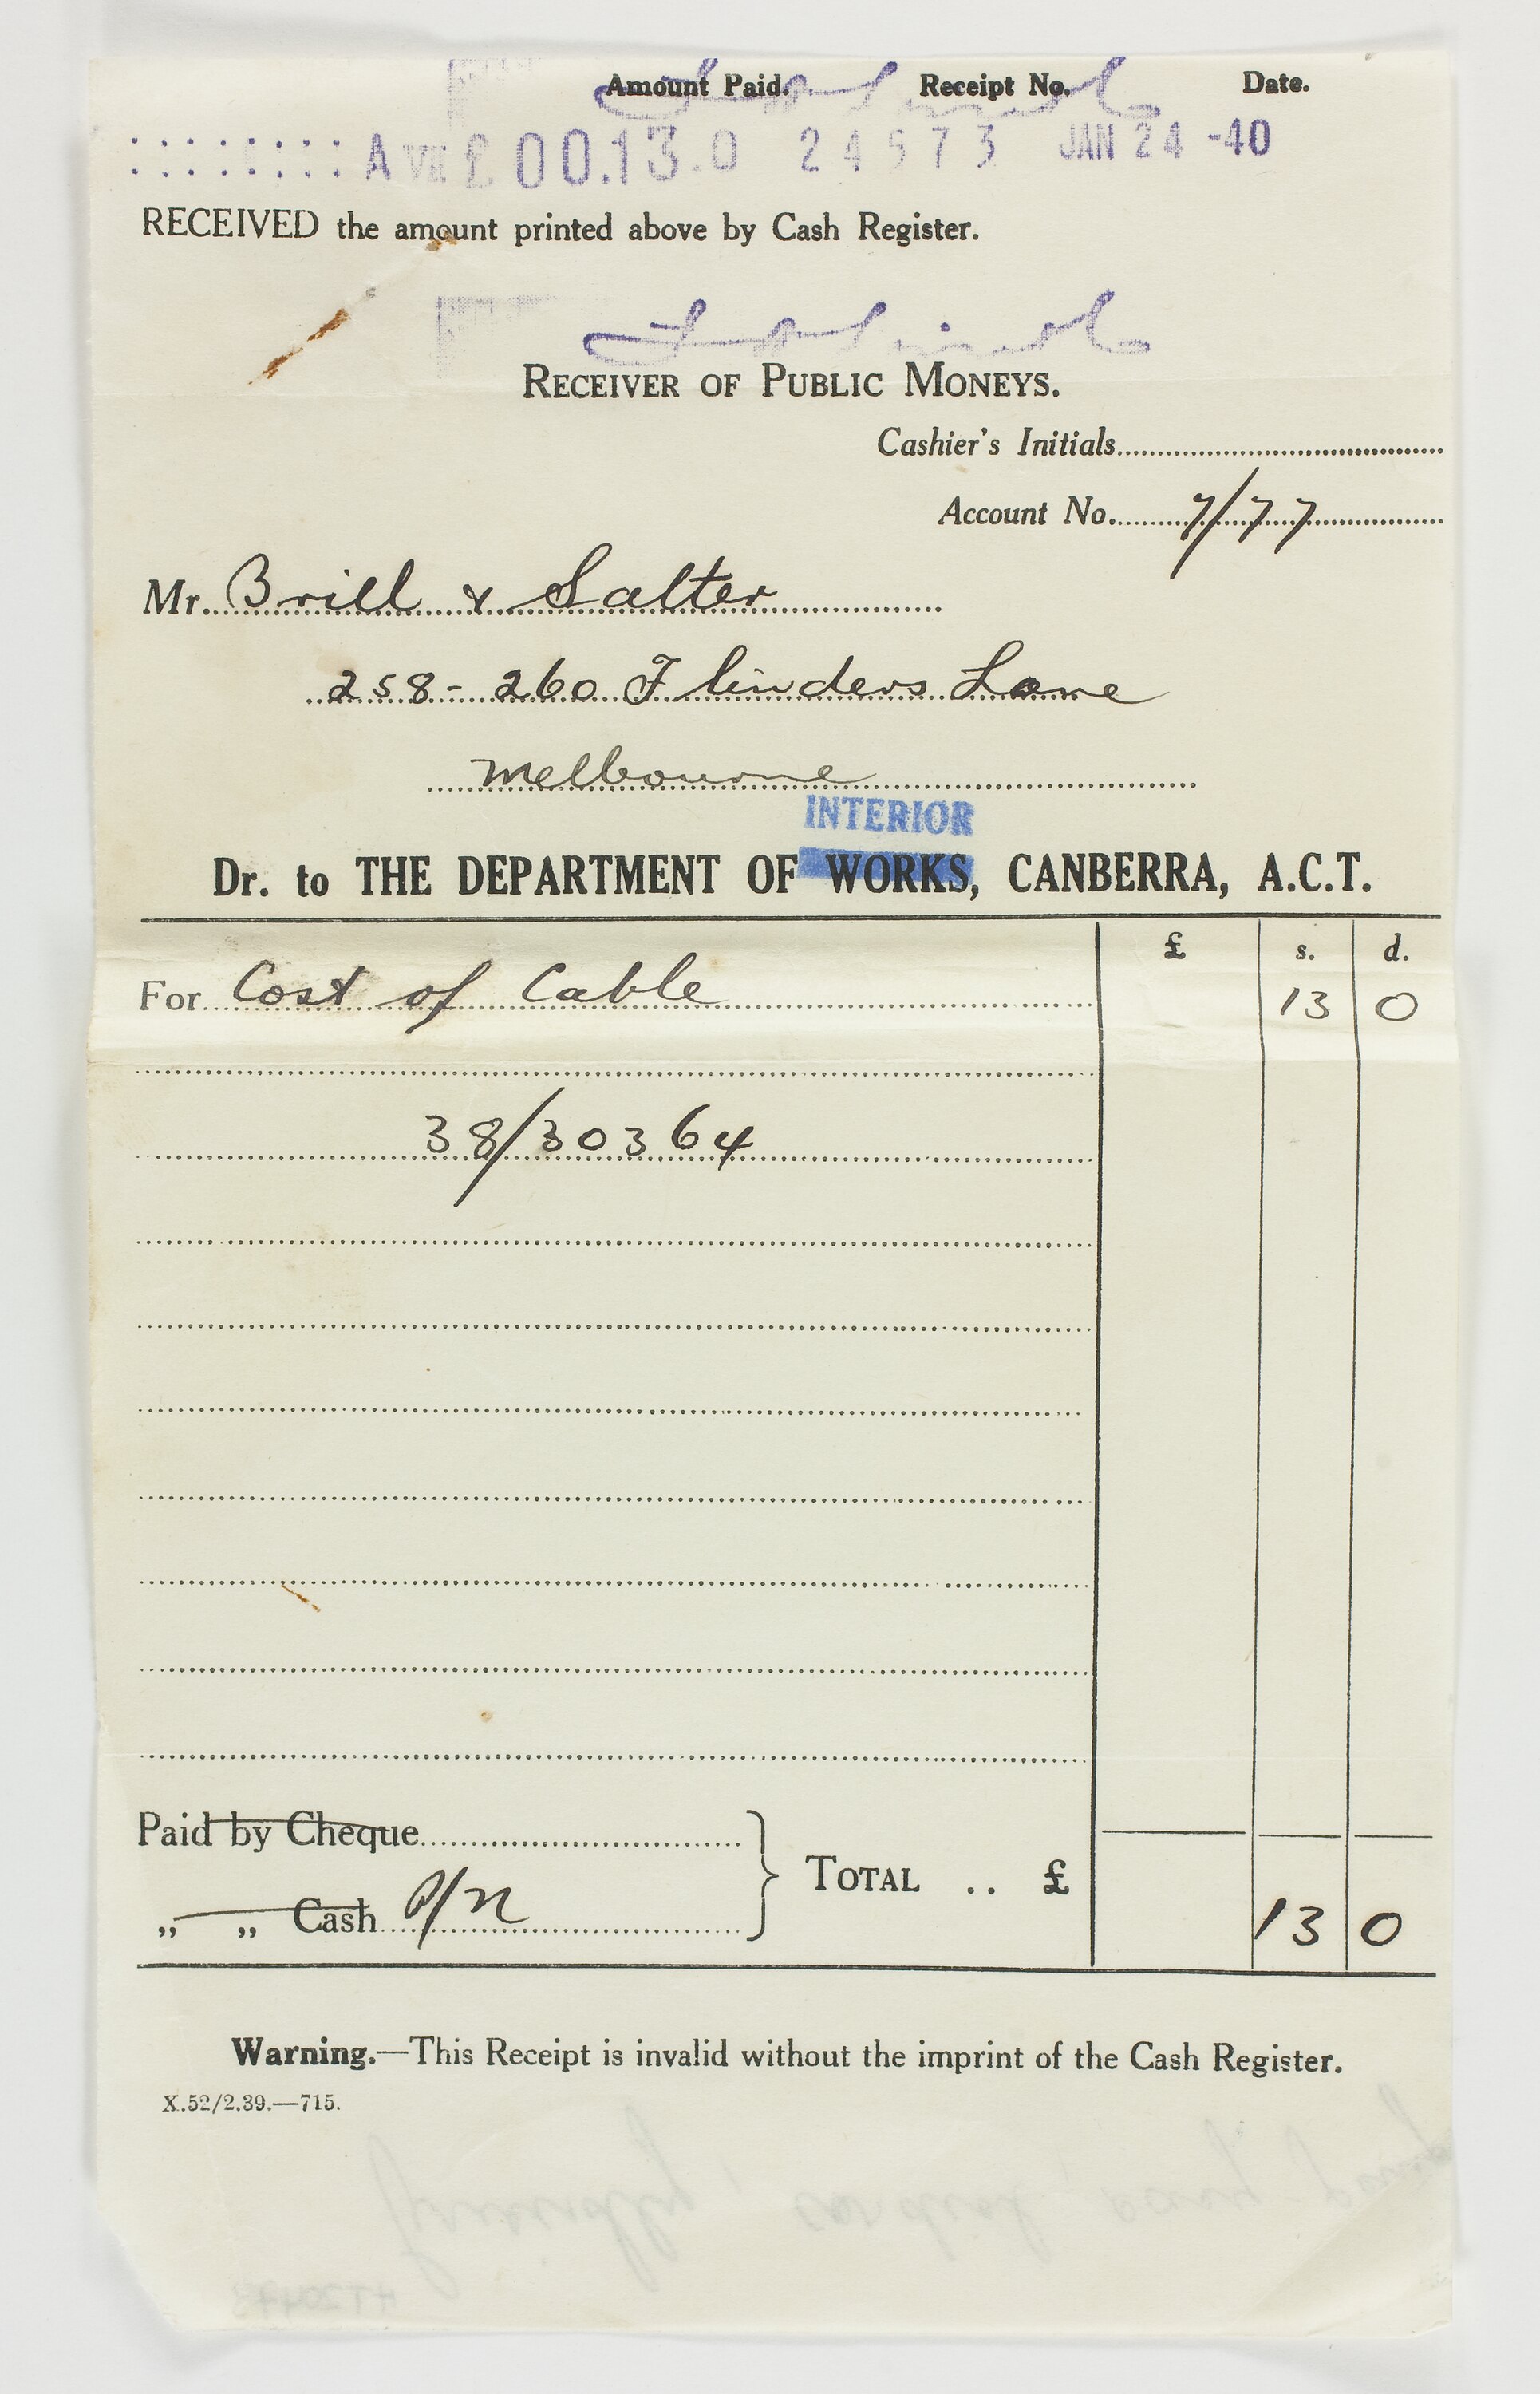 Amount Paid. Receipt No. Date.
A VII £ 00.13.0 24573 JAN 24 -40
RECEIVED the amount printed above by Cash Register.
RECEIVER OF PUBLIC MONEYS.
Cashier's Initials
Account No. 7/77
Mr. Brill & Salter
258-260 Flinders Lane
Melbourne
INTERIOR
Dr. to THE DEPARTMENT OF WORKS, CANBERRA, A.C.T.
£ s. d.
For Cost of Cable 13 0
38/30364
Paid by Cheque
TOTAL .. £ 13 0
„ „ Cash P/N
Warning.—This Receipt is invalid without the imprint of the Cash Register.
X.52/2.39.—715.